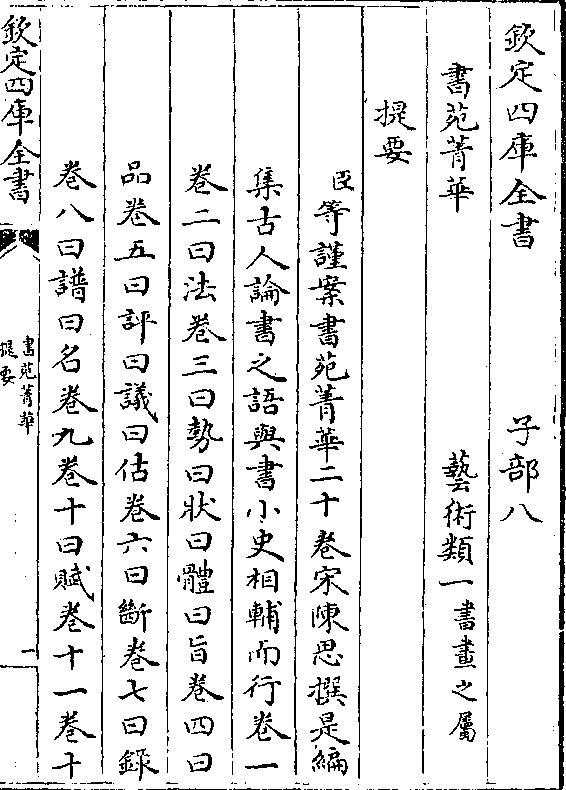 欽定四庫全書　子部八
書苑菁華　藝術類一書畫之屬
提要
臣等謹案書苑菁華二十卷宋陳思撰是編
集古人論書之語與書小史相輔而行卷一
卷二曰法卷三曰勢曰狀曰體曰旨卷四曰
品卷五曰評曰議曰估卷六曰斷卷七曰錄
卷八曰譜曰名卷九卷十曰賦卷十一卷十
欽定四庫全書
書苑菁華
提要
一